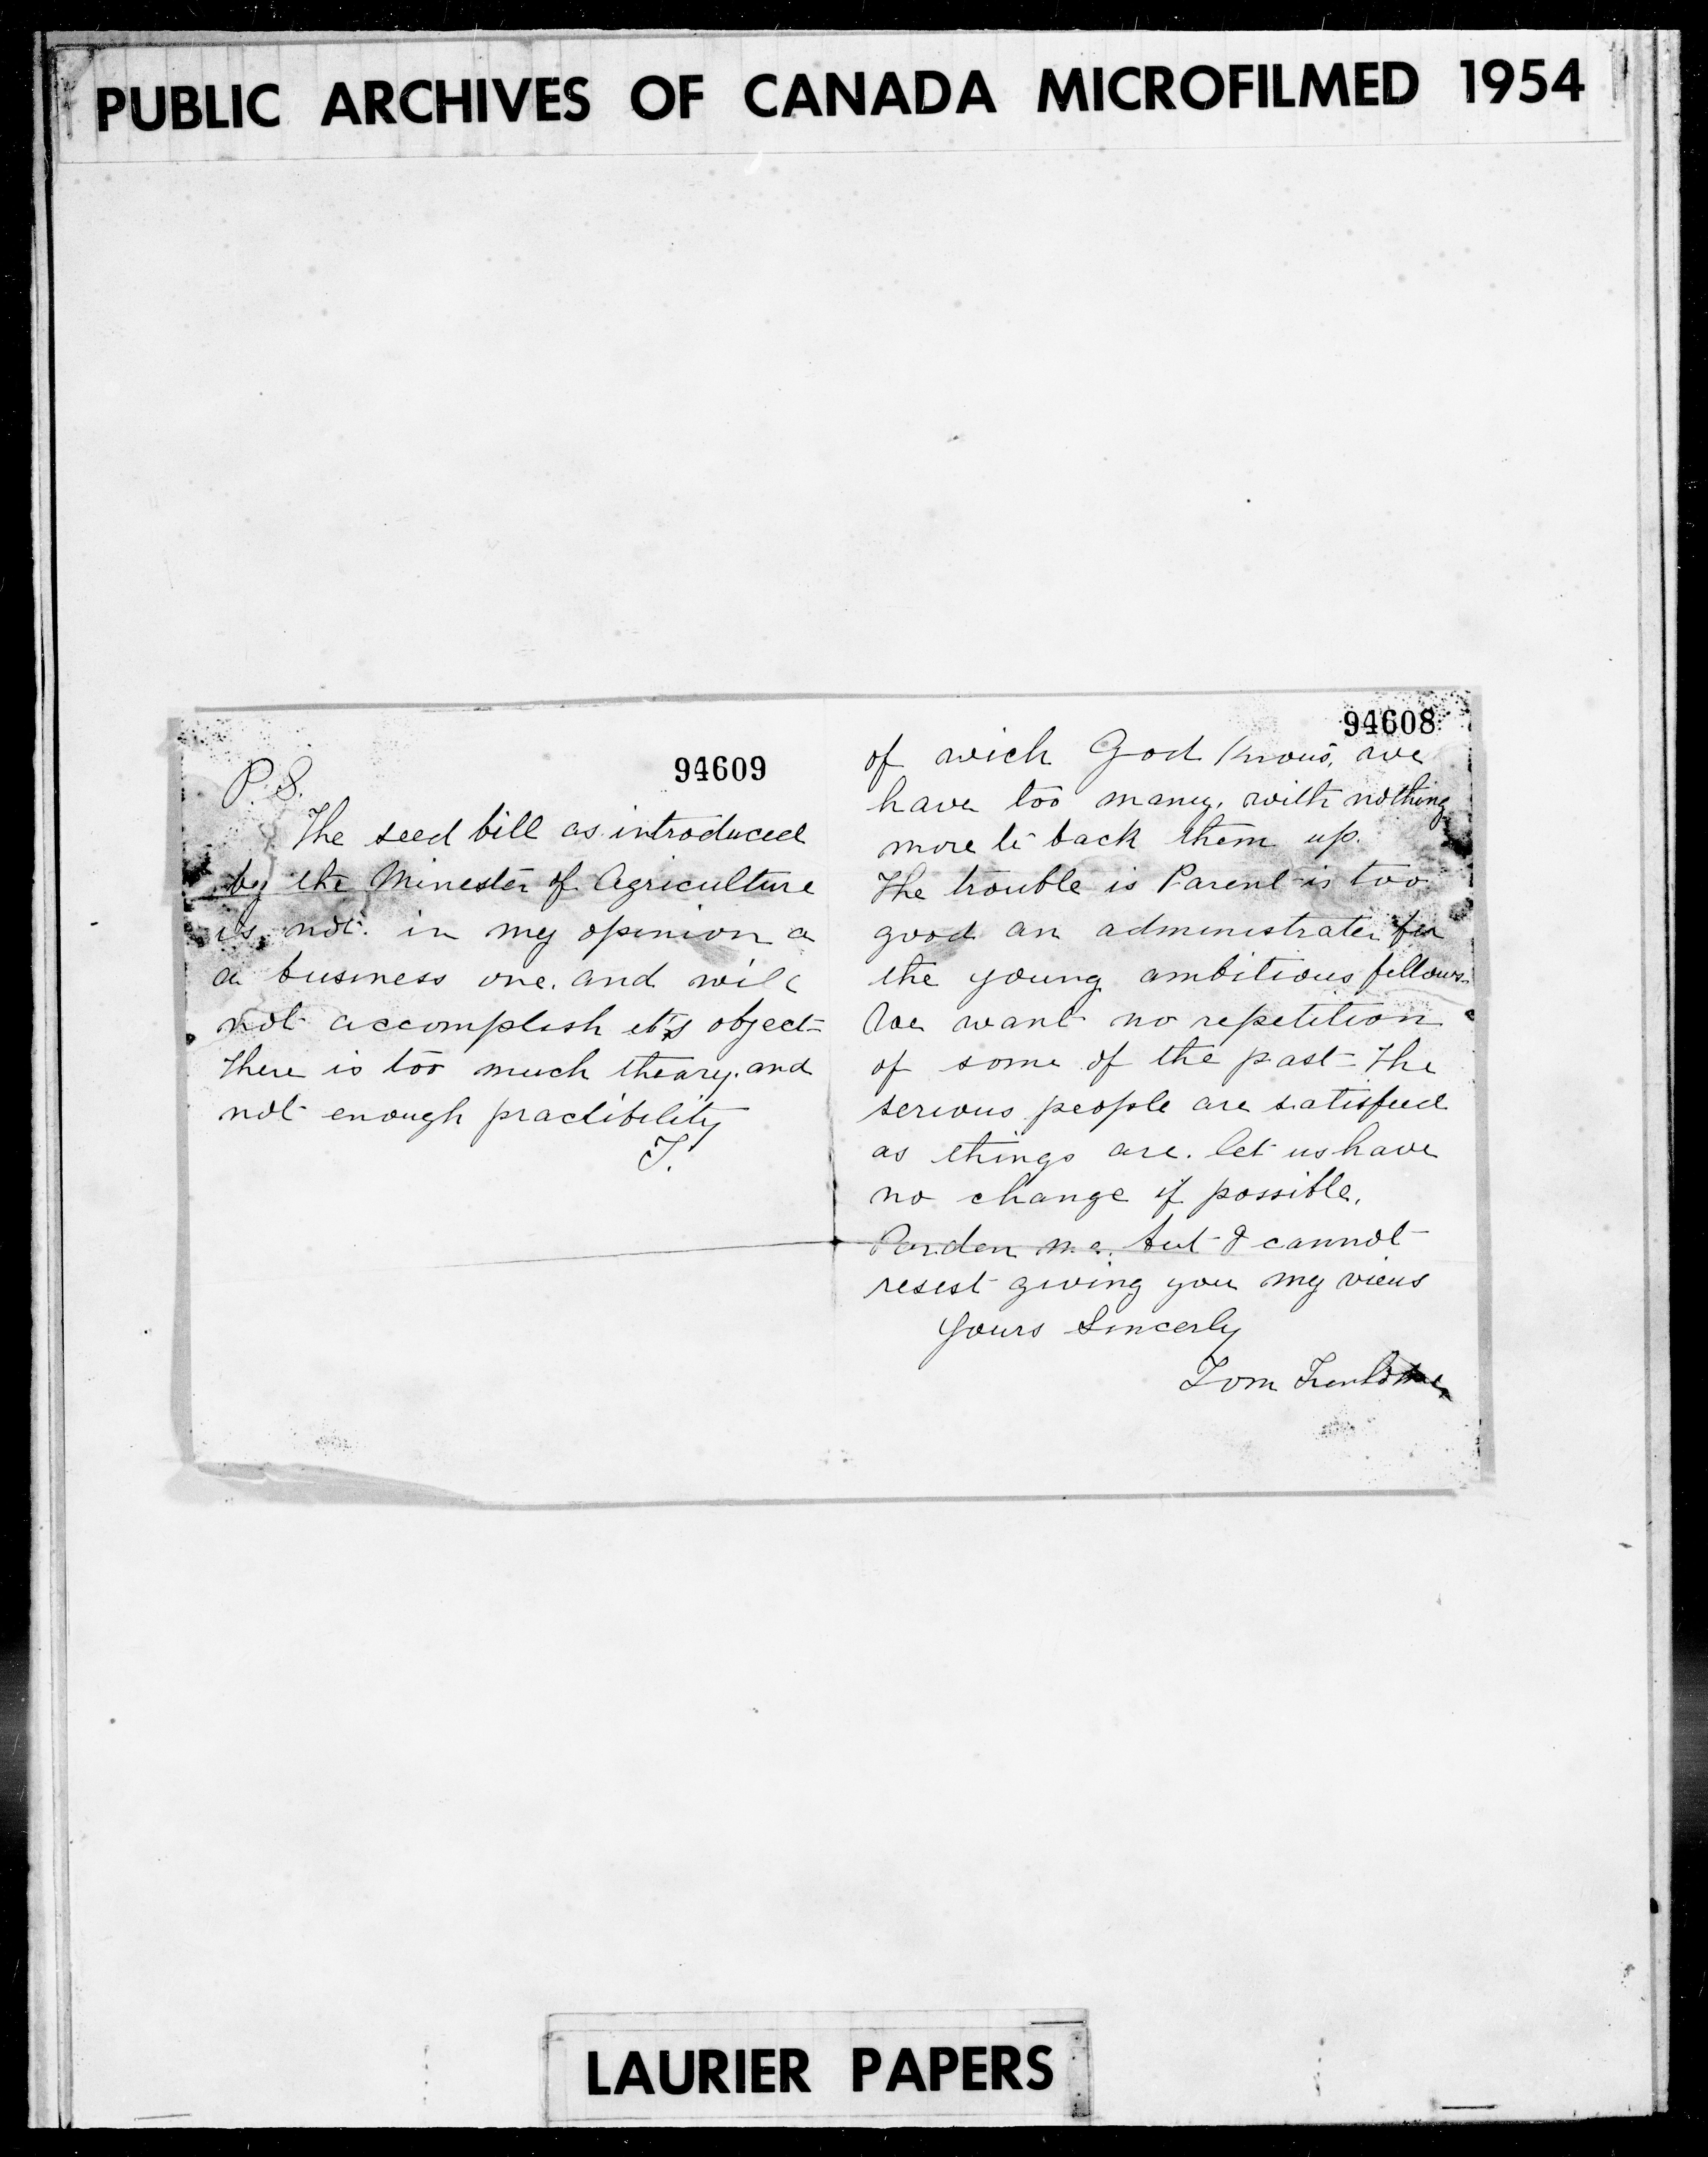 PUBLIC ARCHIVES OF CANADA MICROFILMED 1954
94609
P.S.
The seed bill as introduced
by the Minester of Agriculture
is not in my opinion a
a business one. and will
not accomplish it's object-
There is too much theary. and
not enough practibility
T.
94608
of wich God knows, we
have too many. with nothing
more to back them up.
The trouble is Parent is too
good an administrater for
the young ambitious fellows.
We want no repetition
of some of the past - The
serious people are satisfied
as things are. let us have
no change if possible.
Parden me. but I cannot
resest giving you my views
Yours Sincerly
Tom
LAURIER PAPERS